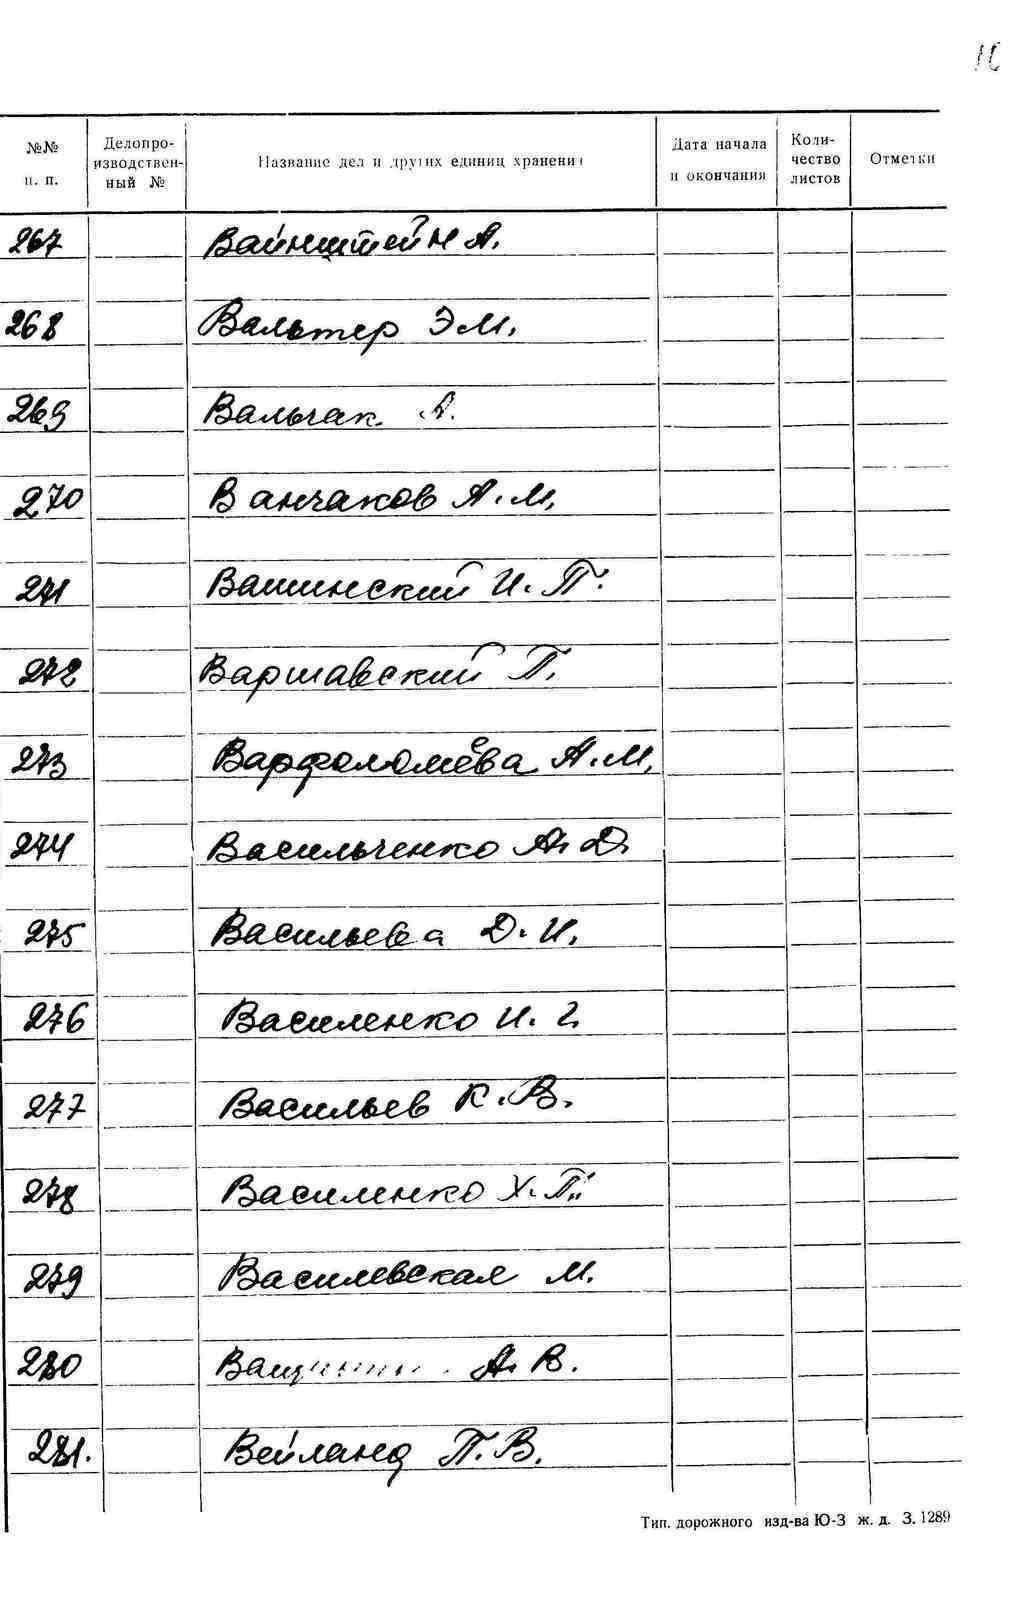 №№ п. п. Делопроизводственный № Название дел и других единиц хранения Дата начала и окончания Количество листов Отметки
267 Вайнштейн А.
268 Вальтер Э.М.
269 Вальчак А.
270 Ванчаков А.М.
271 Вашинский И.П.
272 Варшавский П.
273 Варфоломеева А.М.
274 Васильченко А.Д.
275 Васильева Д.И.
276 Василенко И. Г.
277 Васильев К.В.
278 Василенко Х.П.
279 Василевская М.
280 А.В.
281. Вейланд П.В.
Тип. дорожного изд-ва Ю-З ж. д. З. 1289